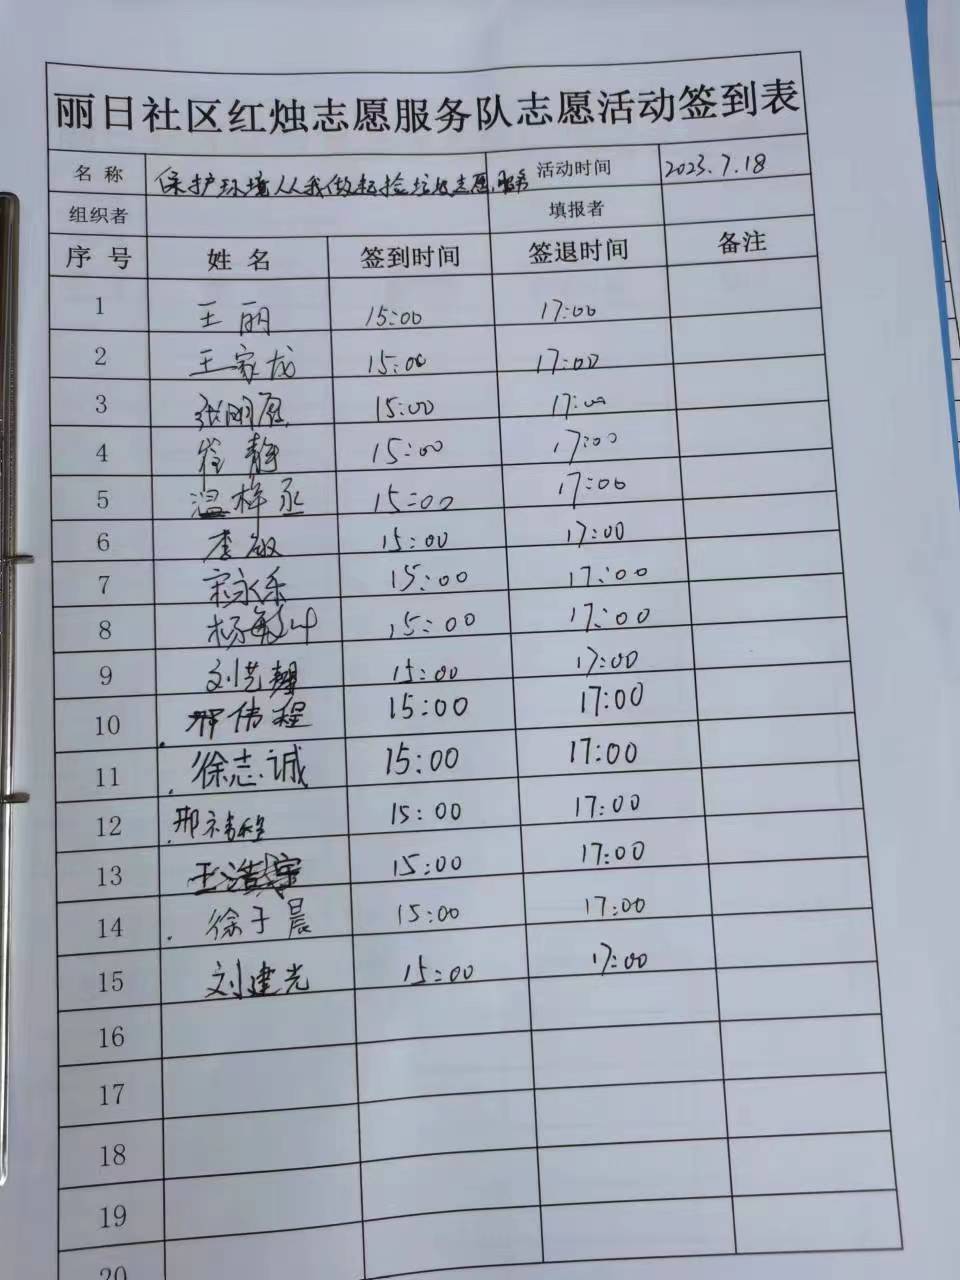 丽日社区红烛志愿服务队志愿活动签到表
名 称 保护环境从我做起捡垃圾志愿服务 活动时间 2023.7.18
组织者 填报者
序 号 姓 名 签到时间 签退时间 备注
1 王丽 15:00 17:00
2 王家龙 15:00 17:00
3 张明 15:00 17:00
4 崔静 15:00 17:00
5 温梓丞 15:00 17:00
6 李敏 15:00 17:00
7 宋永乐 15:00 17:00
8 杨 15:00 17:00
9 刘艺 15:00 17:00
10 邢伟程 15:00 17:00
11 徐志诚 15:00 17:00
12 邢 15:00 17:00
13 王浩宇 15:00 17:00
14 徐于晨 15:00 17:00
15 刘建光 15:00 17:00
16
17
18
19
20